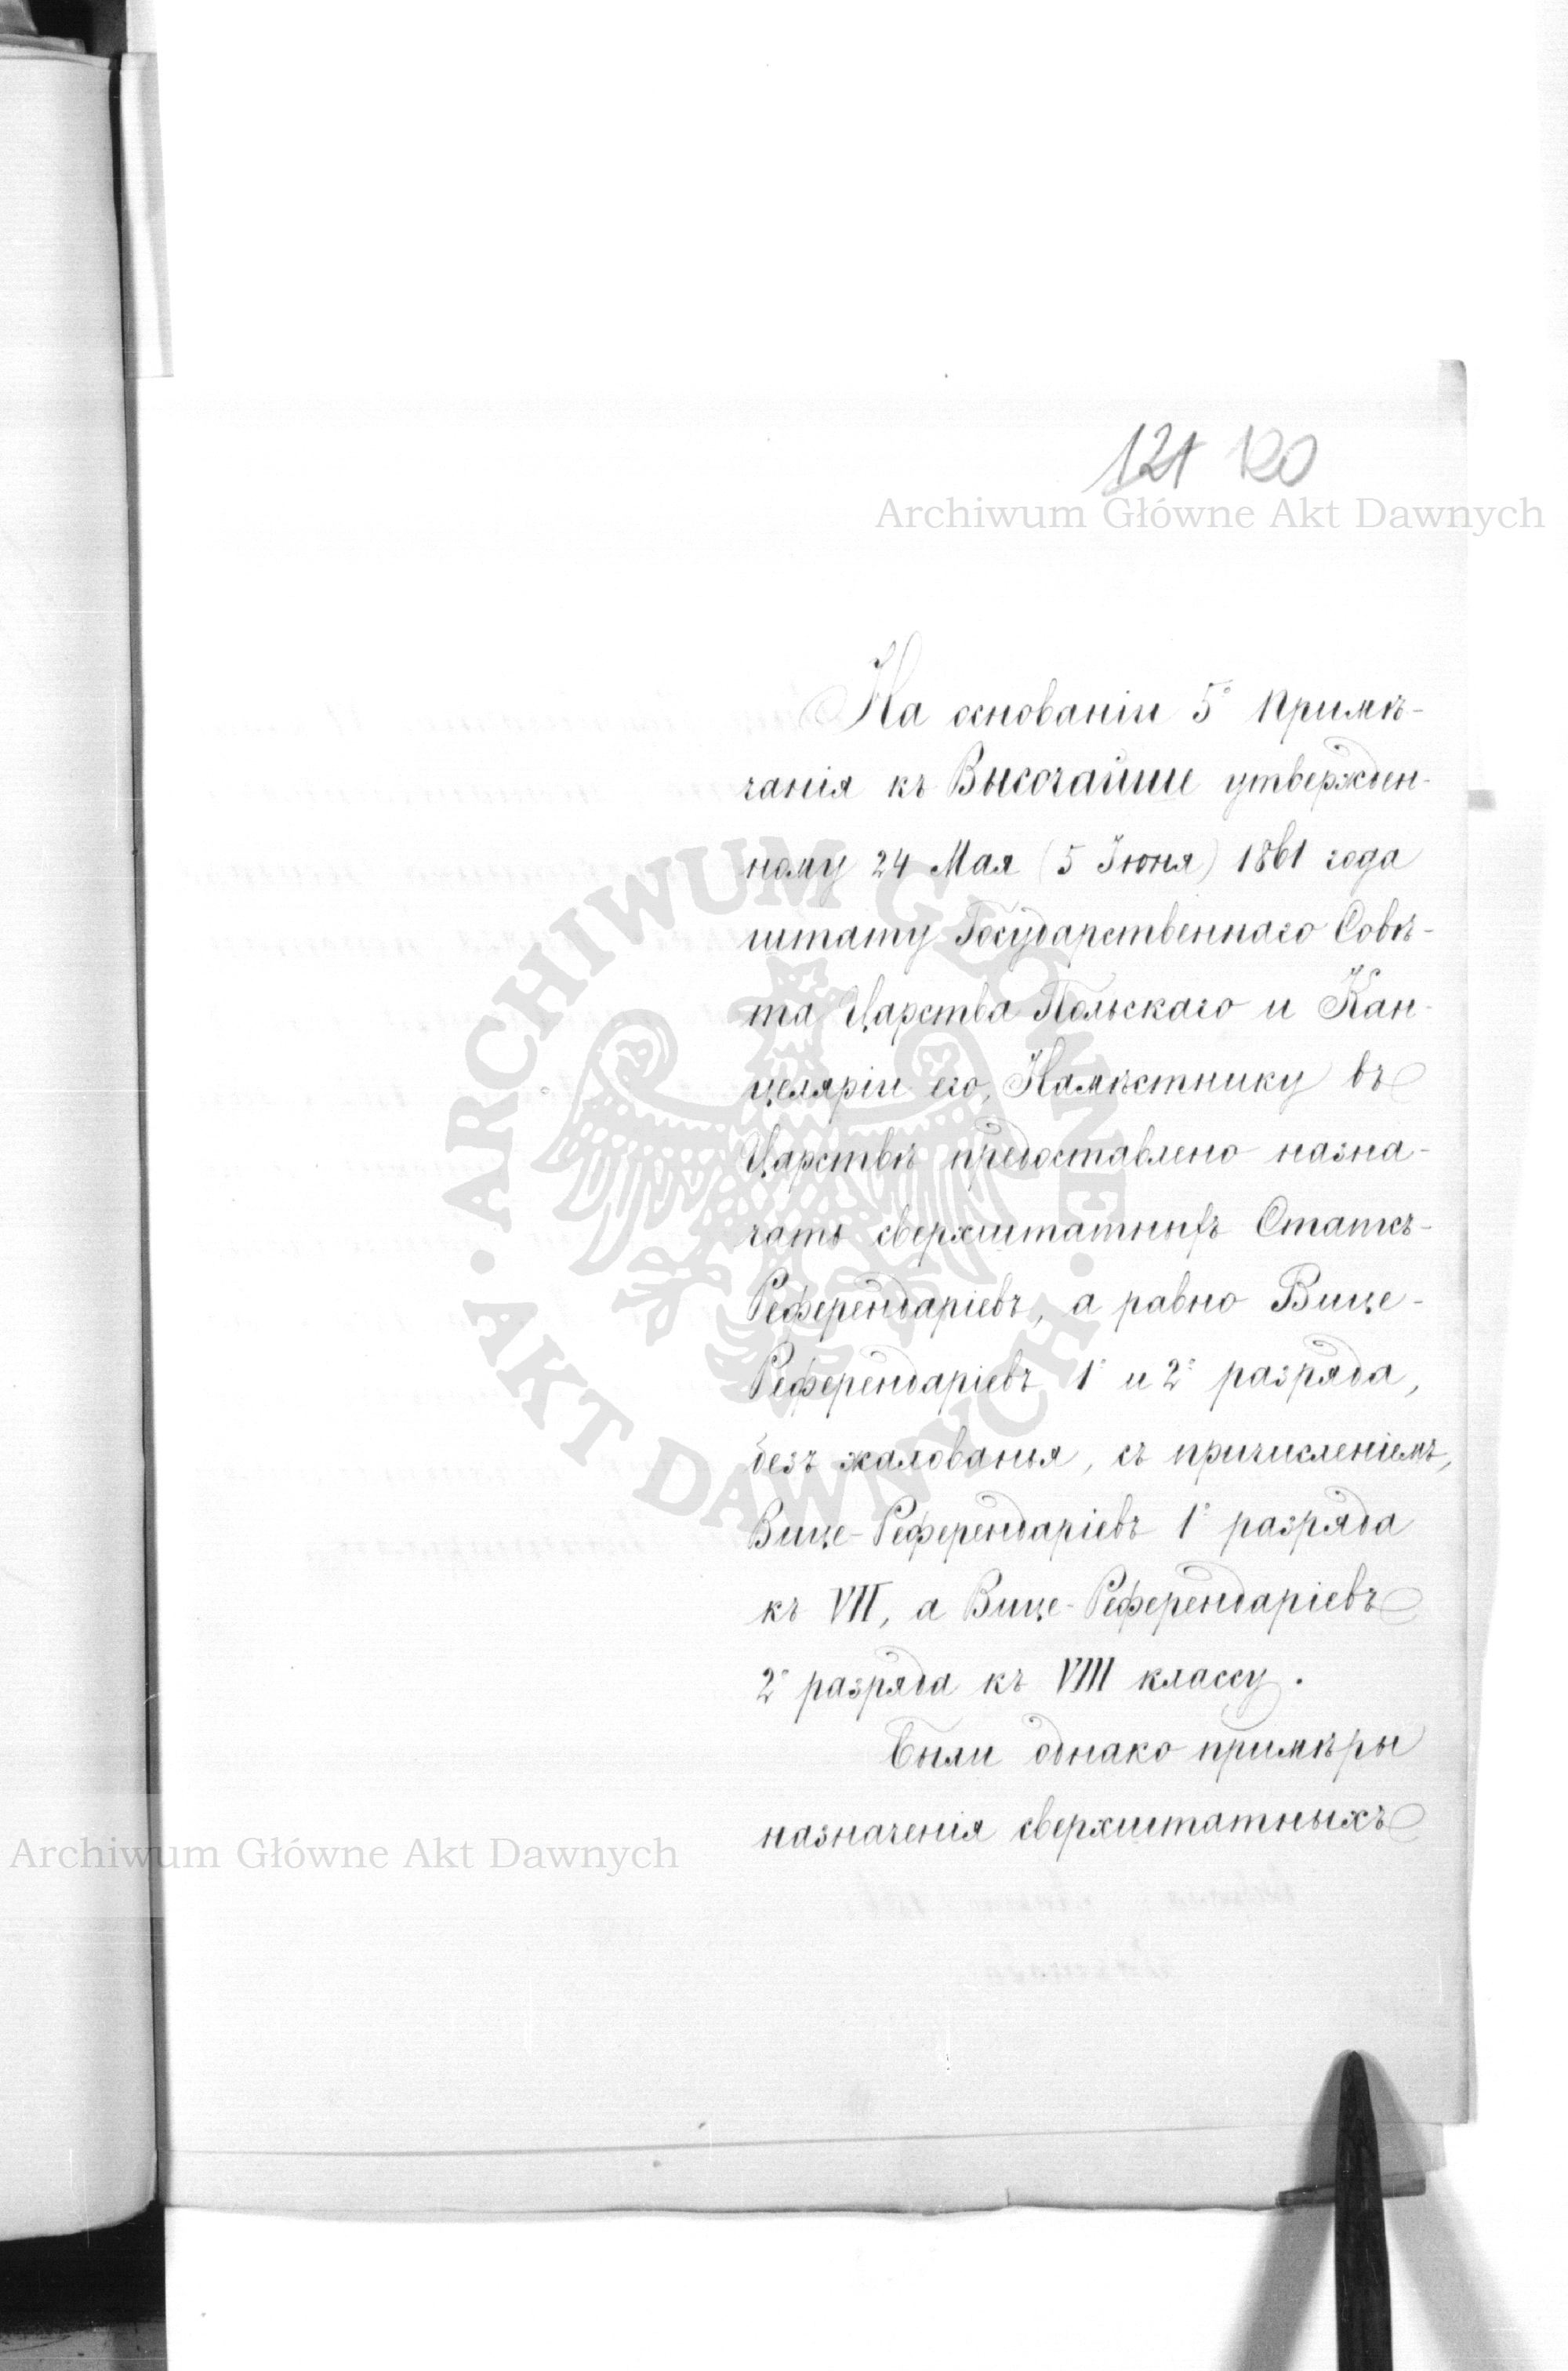 121 120
Archiwum Główne Akt Dawnych
На основаніи 5° Примѣ-
чанія къ Высочайше утвержден-
ному 24 Мая (5 Іюня) 1861 года
штату Государственнаго Совѣ-
та Царства Польскаго и Кан-
целяріи его, Намѣстнику въ
Царствѣ предоставлено назна-
чать сверхштатныхъ Статсъ-
Референдаріевъ, а равно Вице-
Референдаріевъ 1° и 2° разряда,
безъ жалованья, съ причисленіемъ,
Вице-Референдаріевъ 1° разряда
къ VII, а Вице-Референдаріевъ
2° разряда къ VIII классу.
Были однако примѣры
назначенія сверхштатныхъ
Archiwum Główne Akt Dawnych
ARCHIWUM GŁÓWNE · AKT DAWNYCH ·